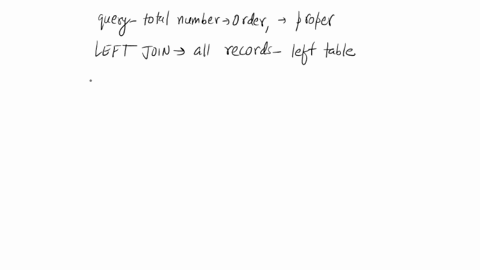 query- total number → Order, → proper
LEFT JOIN → all records- left table